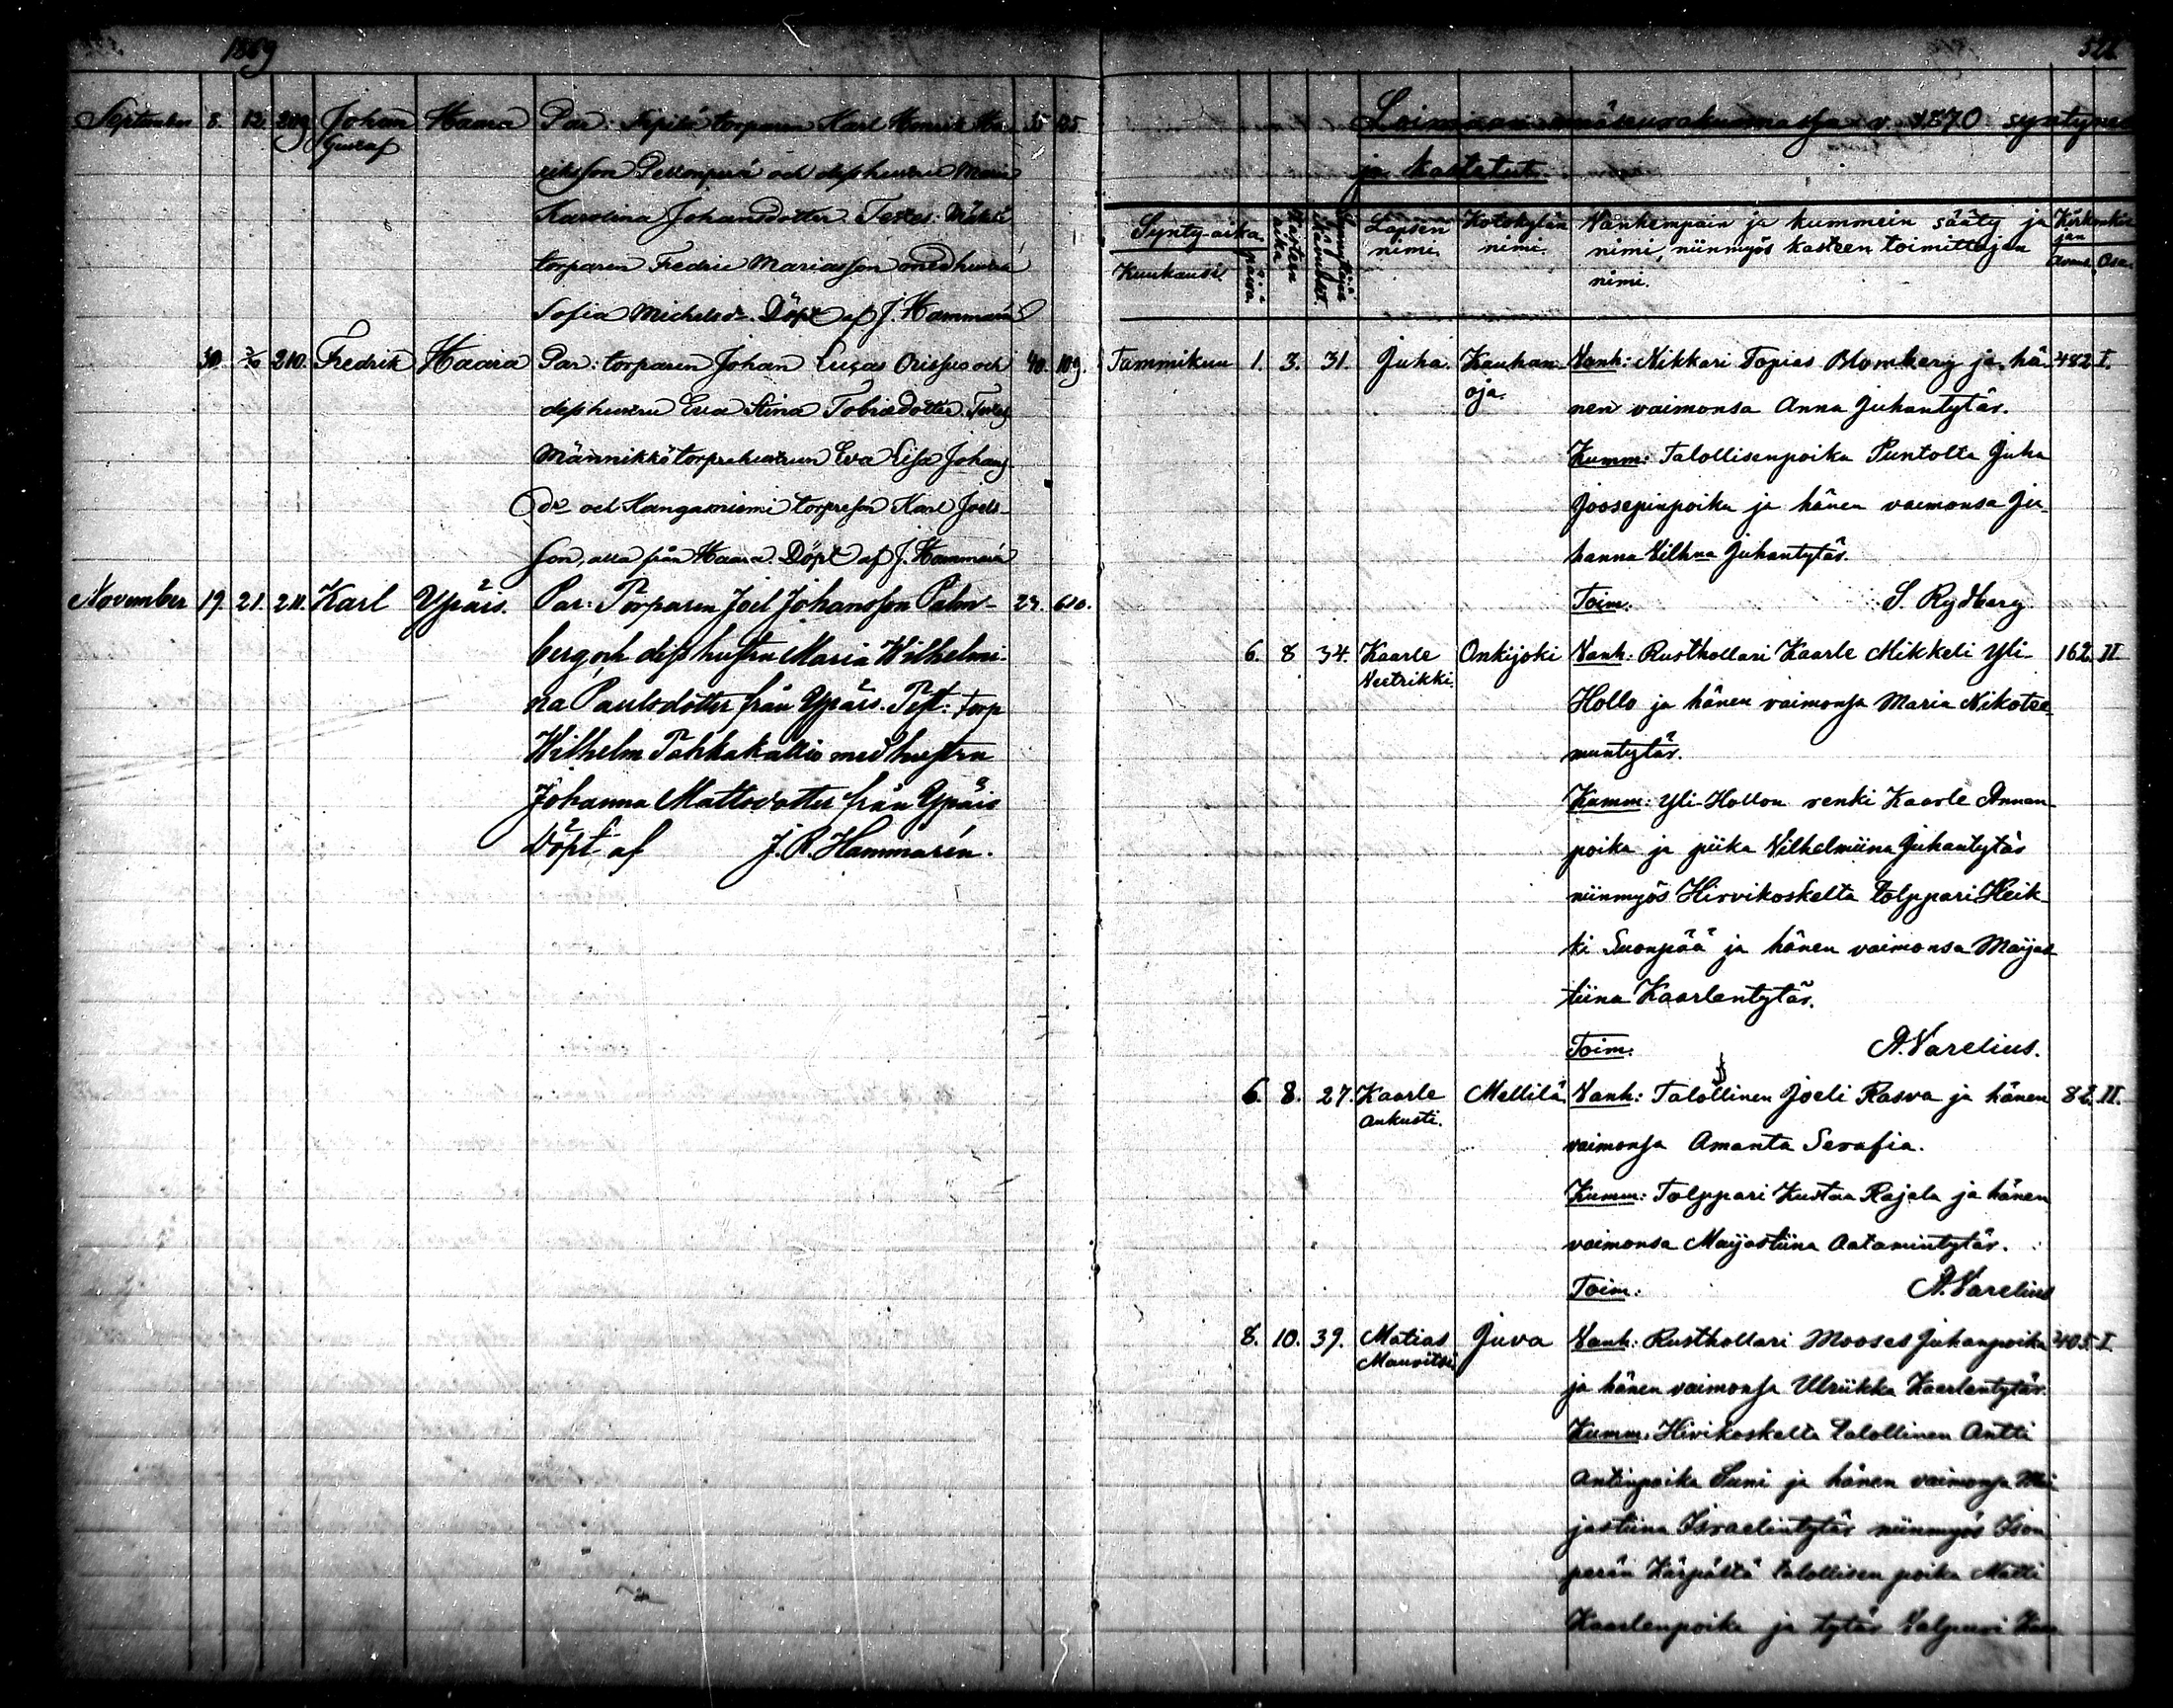 1869
September 8. 12. 209 Johan Haara Par: Sepilä torparen Karl Henrik Hen- 35 105.
Gustaf
riksson Pekonperä och dess hustru Maria
Karolina Johansdotter. Testes:
torparen Fredric Mariasson med hustru
Sofia Michelsdr. Döpt af J. Hammarén
30. 210. Fredrik Haara Par: torparen Johan Lucas och 40. 109.
dess hustru Eva Stina Tobiasdotter. Testes
Männikkö torpare hustrun Eva Lisa Johans
dr och Kangasniemi torpareson Karl Joels-
son, alla från Haara. Döpt af J. Hammarén
November 19. 21. 211. Karl Ypäis. Par: Torparen Joel Johansson Palm- 24. 610.
berg och dess hustru Maria Wilhelmi-
na Paulsdotter från Ypäis. Test: torp
Wilhelm Pahkakallio med hustru
Johanna Mattsdotter från Ypäis
Döpt af J. R. Hammarén.
522
Loimaan emäseurakunnassa v. 1870 syntyneet
ja kastetut.
Synty-aika. Kuukausi. päivä. Kasteen aika. Lapsen nimi. Kotokylän nimi.
Vanhempain ja kummein sääty ja
nimi, niinmyös kasteen toimittajan
nimi.
Kirkonkir
jan
Osa.
Tammikuu 1. 3. 31. Juha. Kauhan- Vanh: Nikkari Topias Blomberg ja hä- 482 I.
oja. nen vaimonsa Anna Juhantytär.
Kumm: Talollisenpoika Puntolta Juha
Joosepinpoika ja hänen vaimonsa Ju-
hanna Vilhna Juhantytär.
Toim. S. Rydberg.
6. 8 34. Kaarle Onkijoki Vanh: Rusthollari Kaarle Mikkeli Yli- 162. II
Veetrikki.
Hollo ja hänen vaimonsa Maria Nikotee-
muntytär.
Kumm: Yli-Hollon renki Kaarle Annan-
poika ja piika Vilhelmiina Juhantytär
niinmyös Hirvikoskelta tolppari Heik-
ki Suonpää ja hänen vaimonsa Maijas
tiina Kaarlentytär.
Toim. A. Varelius.
6. 8. 27. Kaarle Mellilä Vanh: Talollinen Joeli Rasva ja hänen 82. II.
Aukusti.
vaimonsa Amanta Serafia.
Kumm: Tolppari Kustaa Rajala ja hänen
vaimonsa Maijastiina Aatamintytär.
Toim: A. Varelius
8. 10. 39. Matias Juva Vanh: Rusthollari Mooses Juhanpoika 405. I
Mauritsi
ja hänen vaimonsa Ulriikka Kaarlentytär.
Kumm. Hirvikoskelta talollinen Antti
Antinpoika Suni ja hänen vaimonsa Mai
jastiina Israelintytär niinmyös Ison
perän Kärpältä talollisen poika Matti
Kaarlenpoika ja tytär Valpuri Kaar